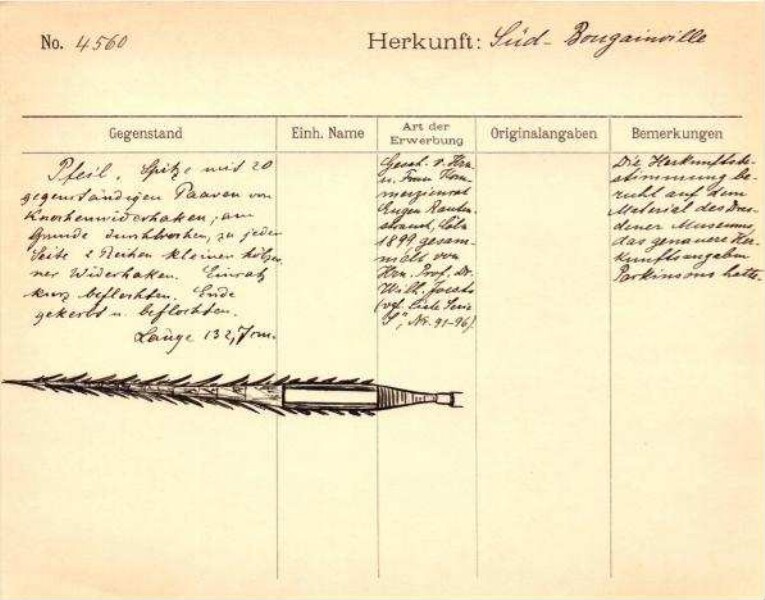 No. 4560
Herkunft: Süd-Bougainville
Gegenstand
Einh. Name
Art der Erwerbung
Originalangaben
Bemerkungen
Pfeil. Spitze mit 20
gegenständigen Paaren von
Knochenwiderhaken; am
Grunde durchbrochen, zu jeder
Seite 2 Reihen kleiner hölzer-
ner Widerhaken. Einsatz
kurz beflochten. Ende
gekerbt u. beflochten.
Länge 132,7 cm.
Gesch. v. Hrn
u. Frau Kom-
merzienrat
Eugen Rauten-
strauch, Cöln
1899 gesam-
melt von
Hrn. Prof. Dr.
Wilh. Joest
(vgl. Liste Serie
"S", Nr. 91-96).
Die Herkunftsbe-
stimmung be-
ruht auf dem
Material des Dres-
dener Museums,
das genauere Her-
kunftsangaben
Parkinsons hatte.